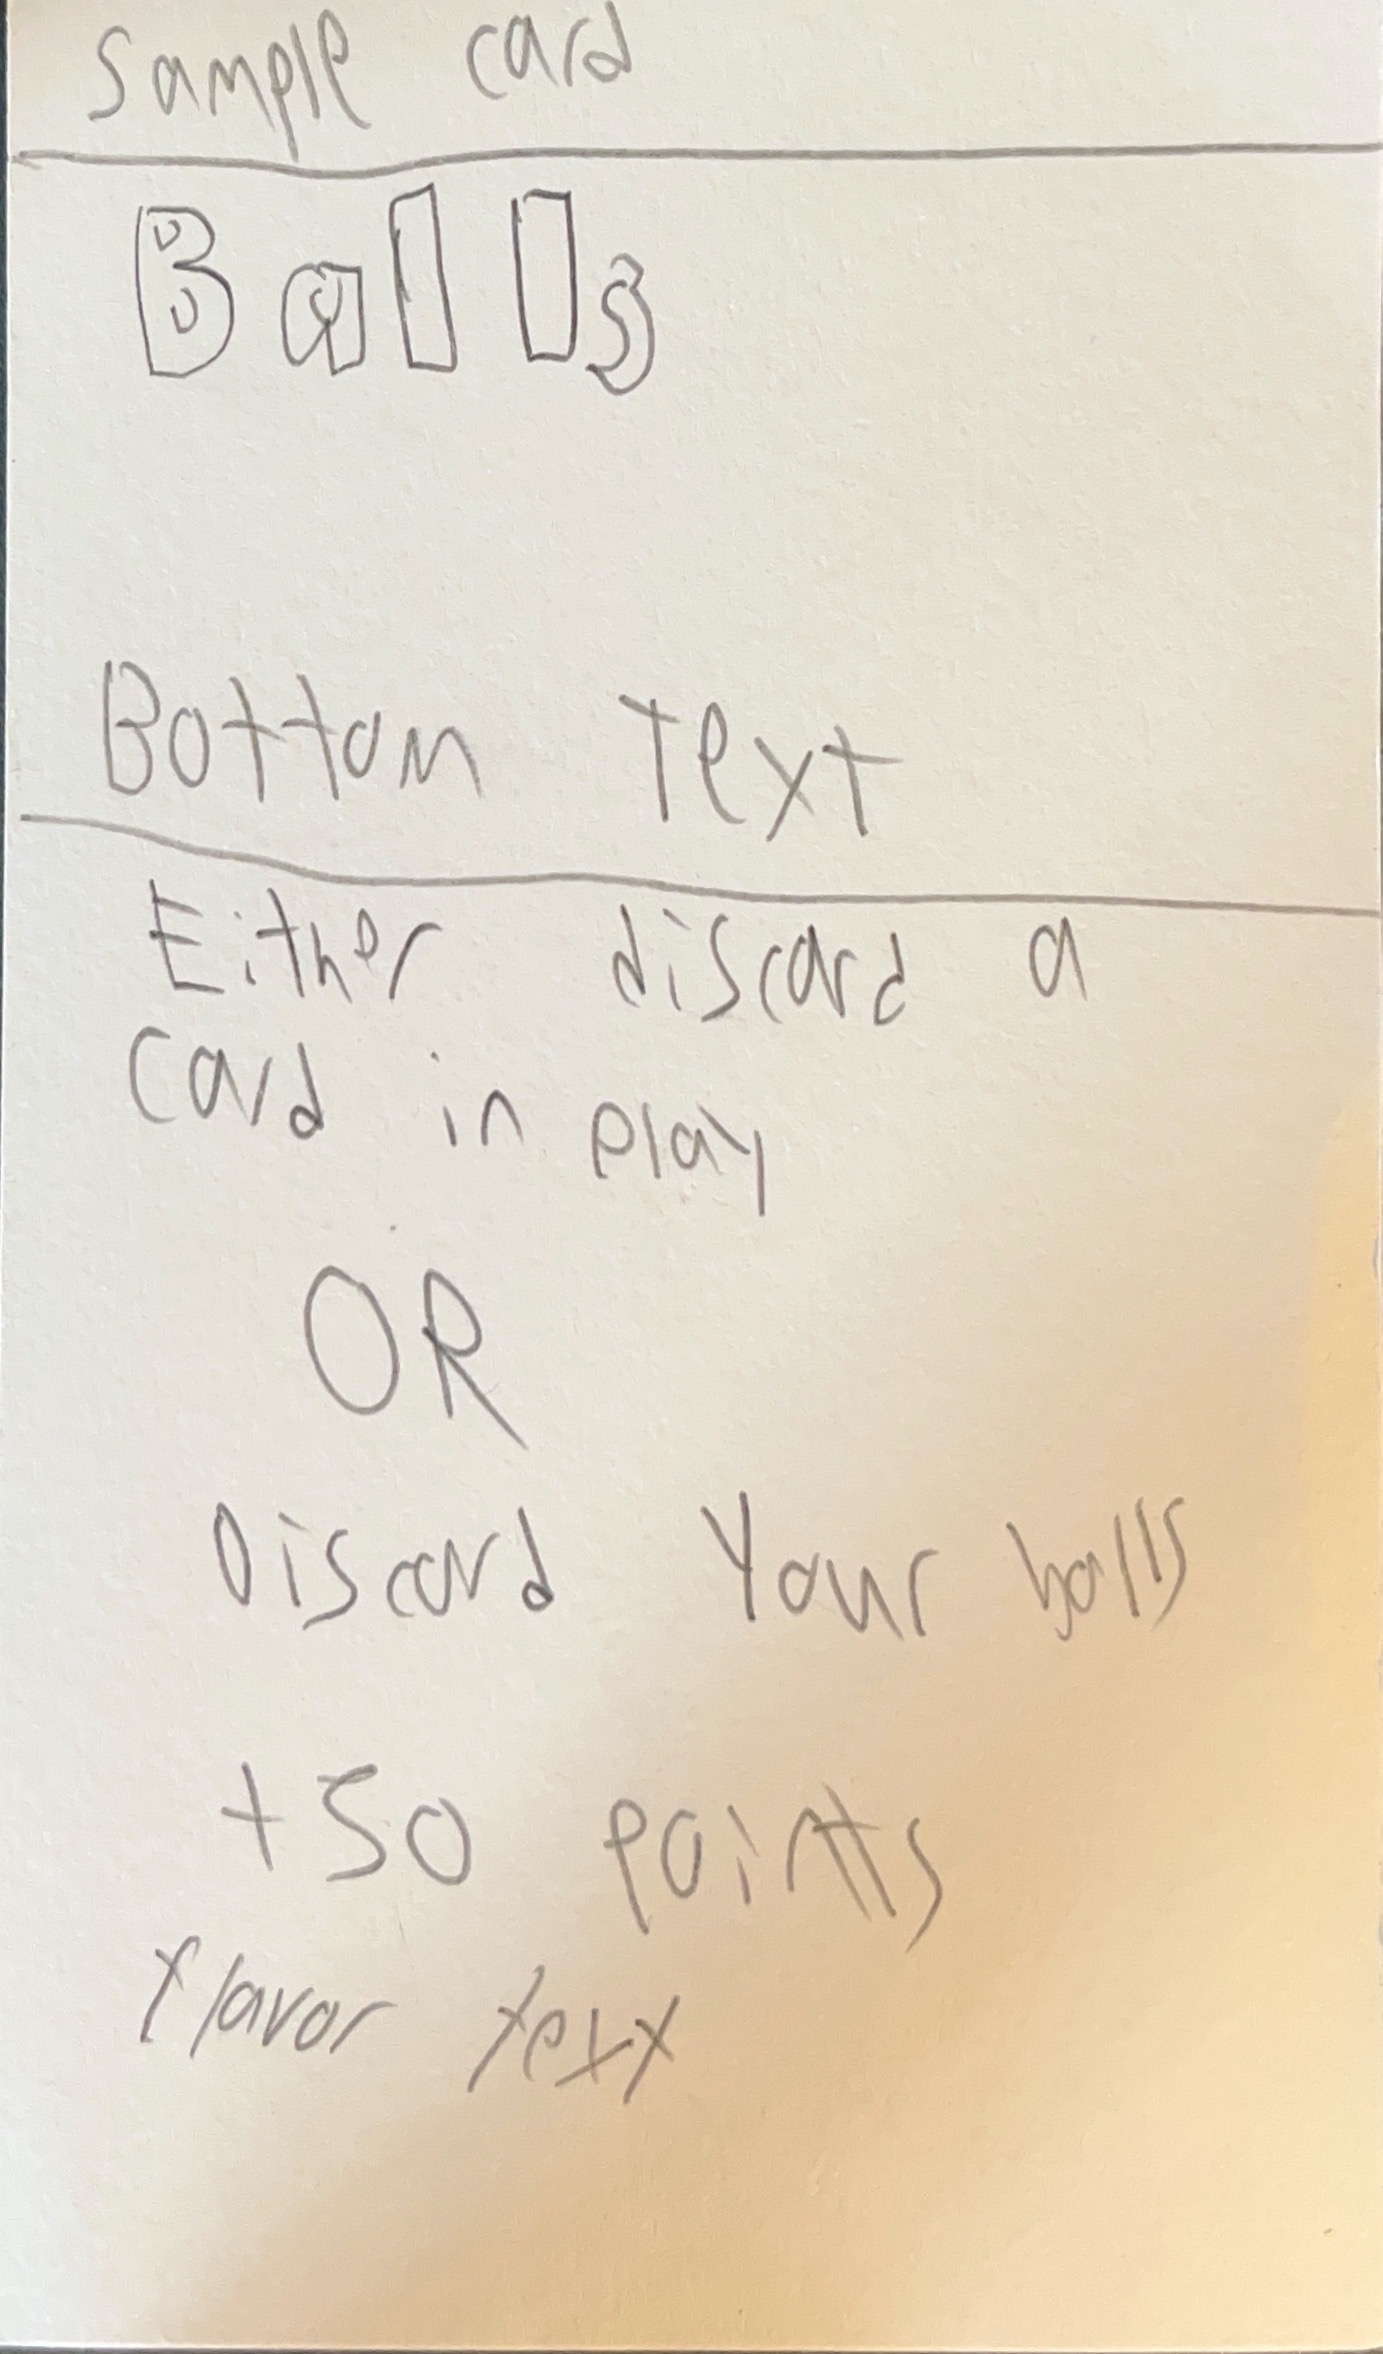 Sample card
Balls
Bottom text
Either discard a
card in play
OR
Discard Your balls
+50 points
flavor text